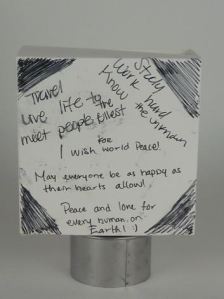 Travel
Live life to the fullest
meet people
Study
Work hard
Know the unknown
I wish for world Peace!
May everyone be as happy as
their hearts allow!
Peace and love for
every human on
Earth! :)